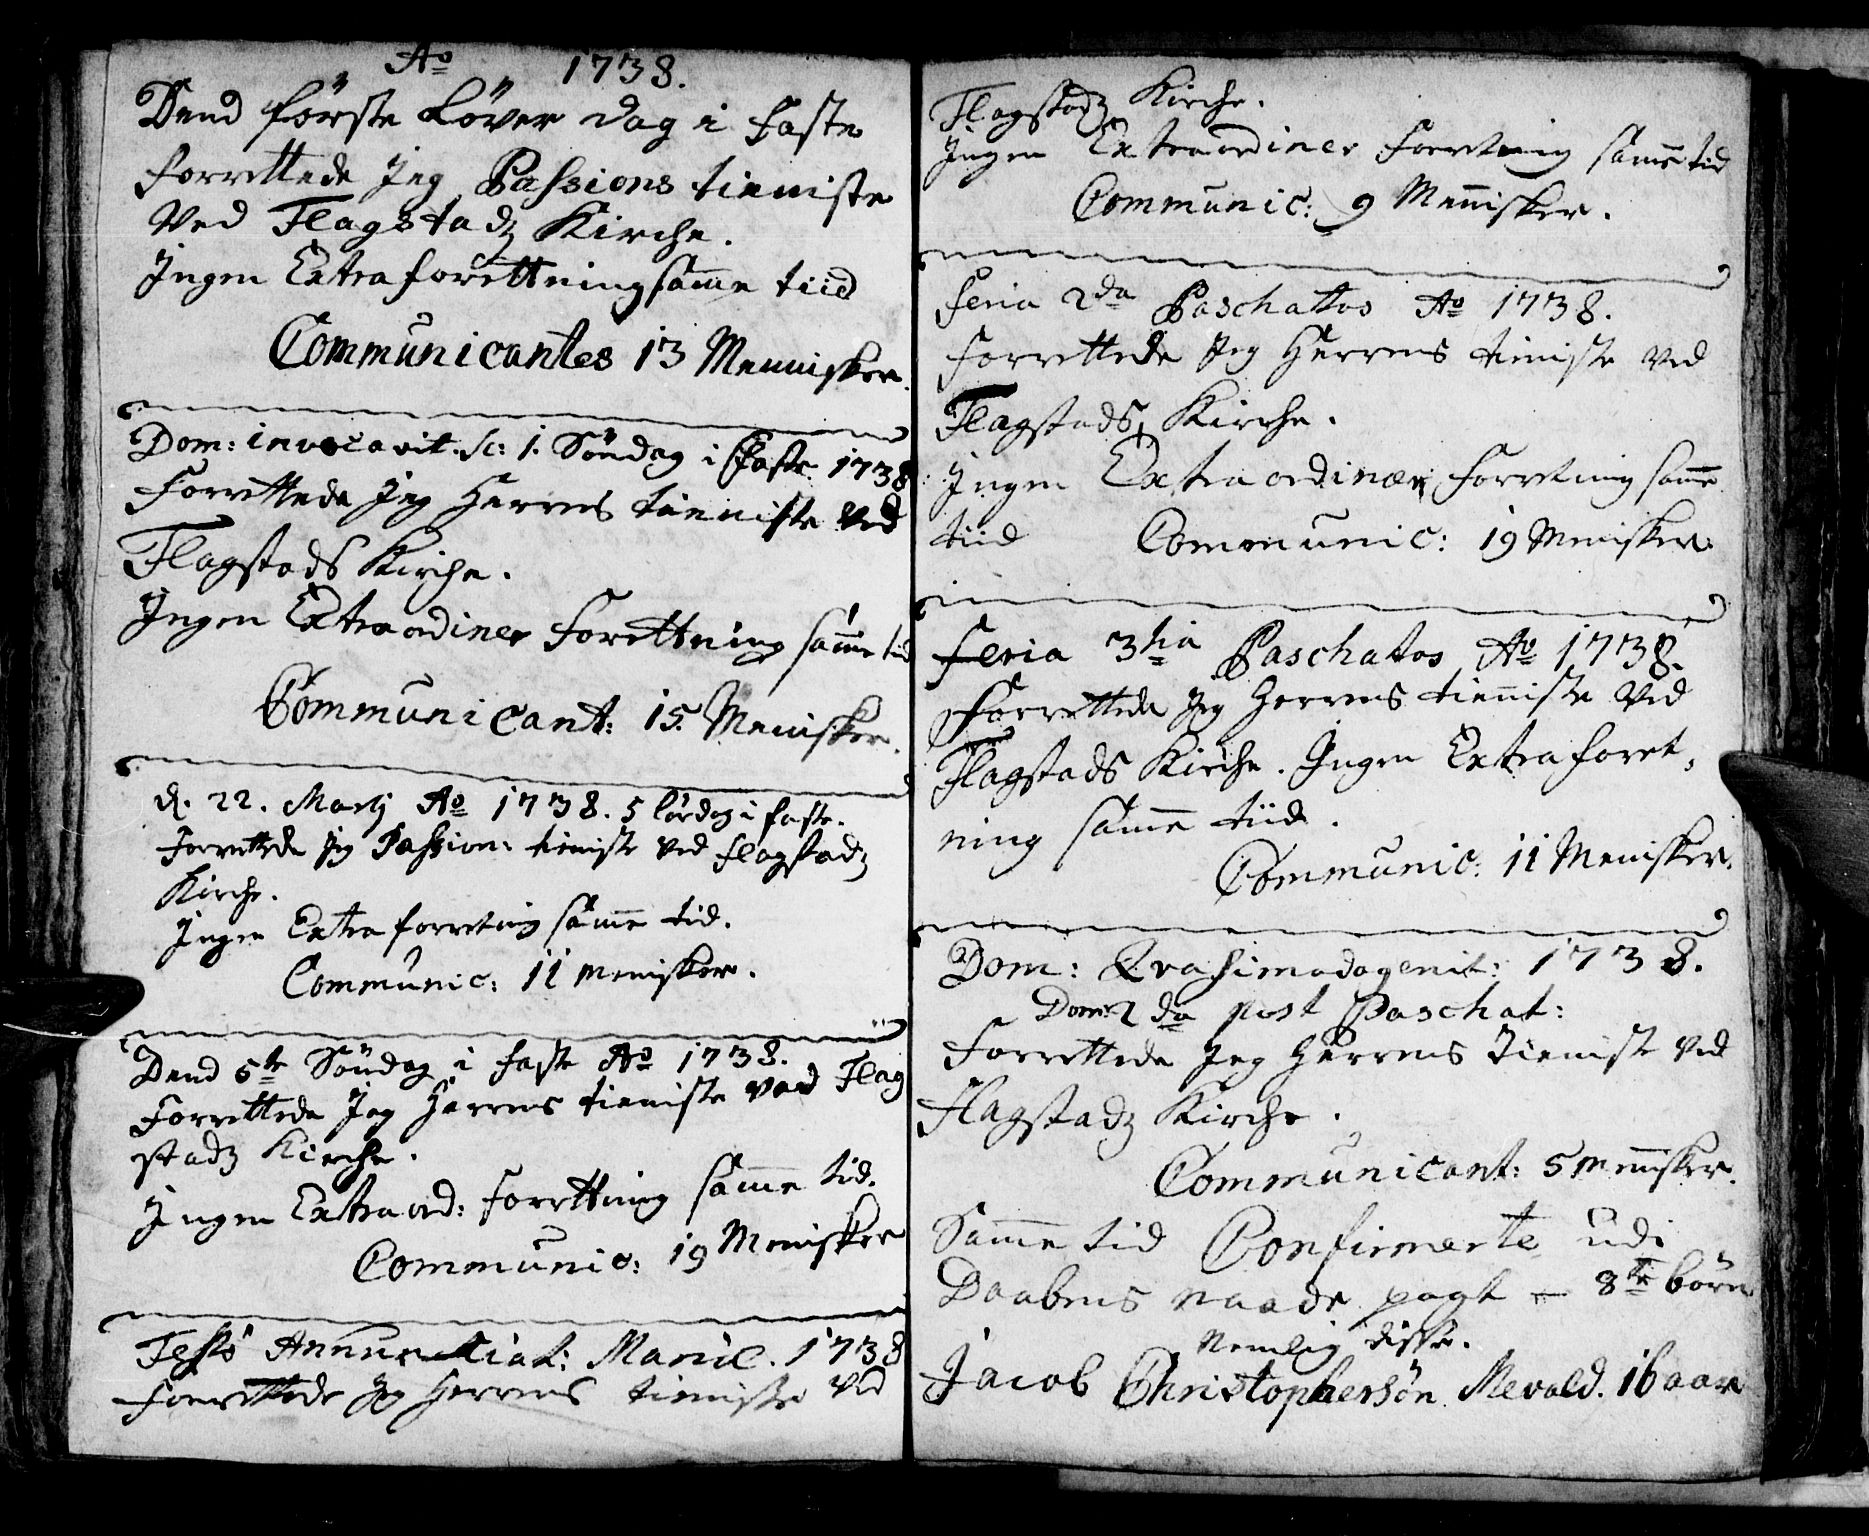 Ao 1738.
Dend förste Löver dag i faste
forrettede Jeg Passions tieniste
Ved Flagstadz Kirche.
Ingen Extra forettning samme tiid
Communicantes 13 Mennisker.
Dom: invocavit. sc: 1. Söndag i Faste 1738
Forrettede Jeg Herrens tieniste Ved
Flagstads Kirche.
Ingen Extraordiner Forettning samme tid
Communicant: 15. Menisker.
d. 22. Martj Ao 1738. 5 lördag i faste.
Forrettede Jeg Passion: tieniste Ved Flagstadz
Kirche.
Ingen Extra forretning samme tid.
Communic: 11 menisker.
Dend 5te Söndag i faste Ao 1738.
Forrettede Jeg Herrens tieniste Ved Flag
stadz Kirche.
Ingen Extraord: Forrettning samme tid.
Communic: 19 Menisker
Festo Annunctiat: Mariæ. 1738
Forrettede Jeg Herrens tieniste Ved
Flagstadz Kirche.
Ingen Extraordiner Forretnig samme tid
Communic: 9 Mennisker.
Feria 2da Paschattos Ao 1738.
Forrettede Jeg Herrens tieniste Ved
Flagstads Kirche.
Ingen Extraordinær Forretning samme
tiid Communic: 19 Menisker.
Feria 3tia Paschatos Ao 1738.
Forrettede Jeg Herrens tienniste Ved
Flagstads Kirche. Ingen Extra foret,
ning samme tiid.
Communic: 11 Menisker.
Dom: Qvasimodogenit: 1738.
Dom: 2da post Paschat:
Forrettede Jeg Herrens Tieniste Ved
Flagstadz Kirche.
Communicant: 5 mennisker.
Samme tid Confirmerte udi
Daabens naade pagt - 8te börn
Nemlig disse.
Jacob Christophersön Mevold. 16 aar